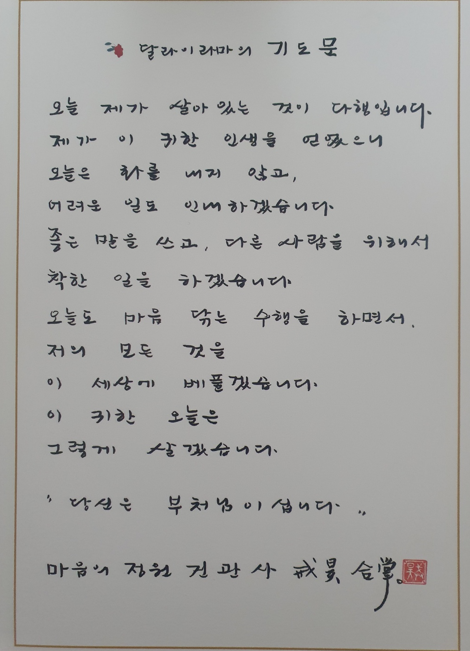 달라이라마의 기도문
오늘 제가 살아있는 것이 다행입니다.
제가 이 귀한 인생을 얻었으니
오늘은 화를 내지 않고,
어려운 일도 인내하겠습니다.
좋은 말을 쓰고, 다른 사람을 위해서
착한 일을 하겠습니다.
오늘도 마음 닦는 수행을 하면서,
저의 모든 것을
이 세상에 베풀겠습니다.
이 귀한 오늘은
그렇게 살겠습니다.
"당신은 부처님이십니다."
마음의 정원 건관사 戒昊 合掌.